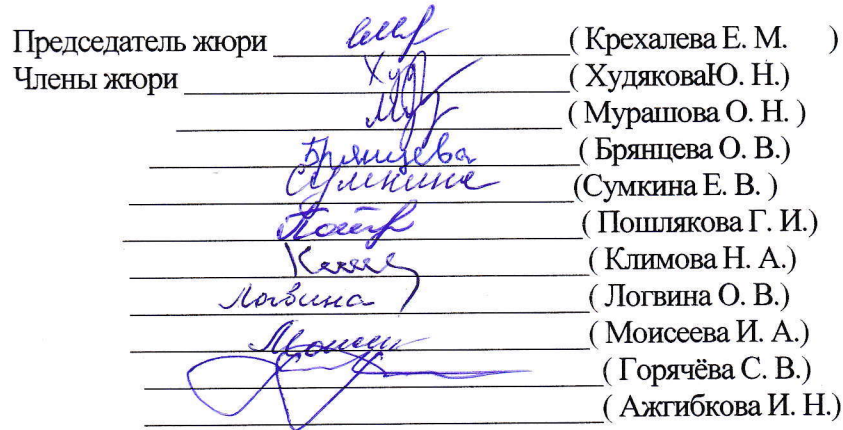 Председатель жюри ( Крехалева Е. М. )
Члены жюри Худ ( ХудяковаЮ. Н.)
( Мурашова О. Н. )
Брянцева ( Брянцева О. В.)
Сумкина (Сумкина Е. В. )
( Пошлякова Г. И.)
( Климова Н. А.)
Логвина ( Логвина О. В.)
( Моисеева И. А.)
( Горячёва С. В.)
( Ажгибкова И. Н.)